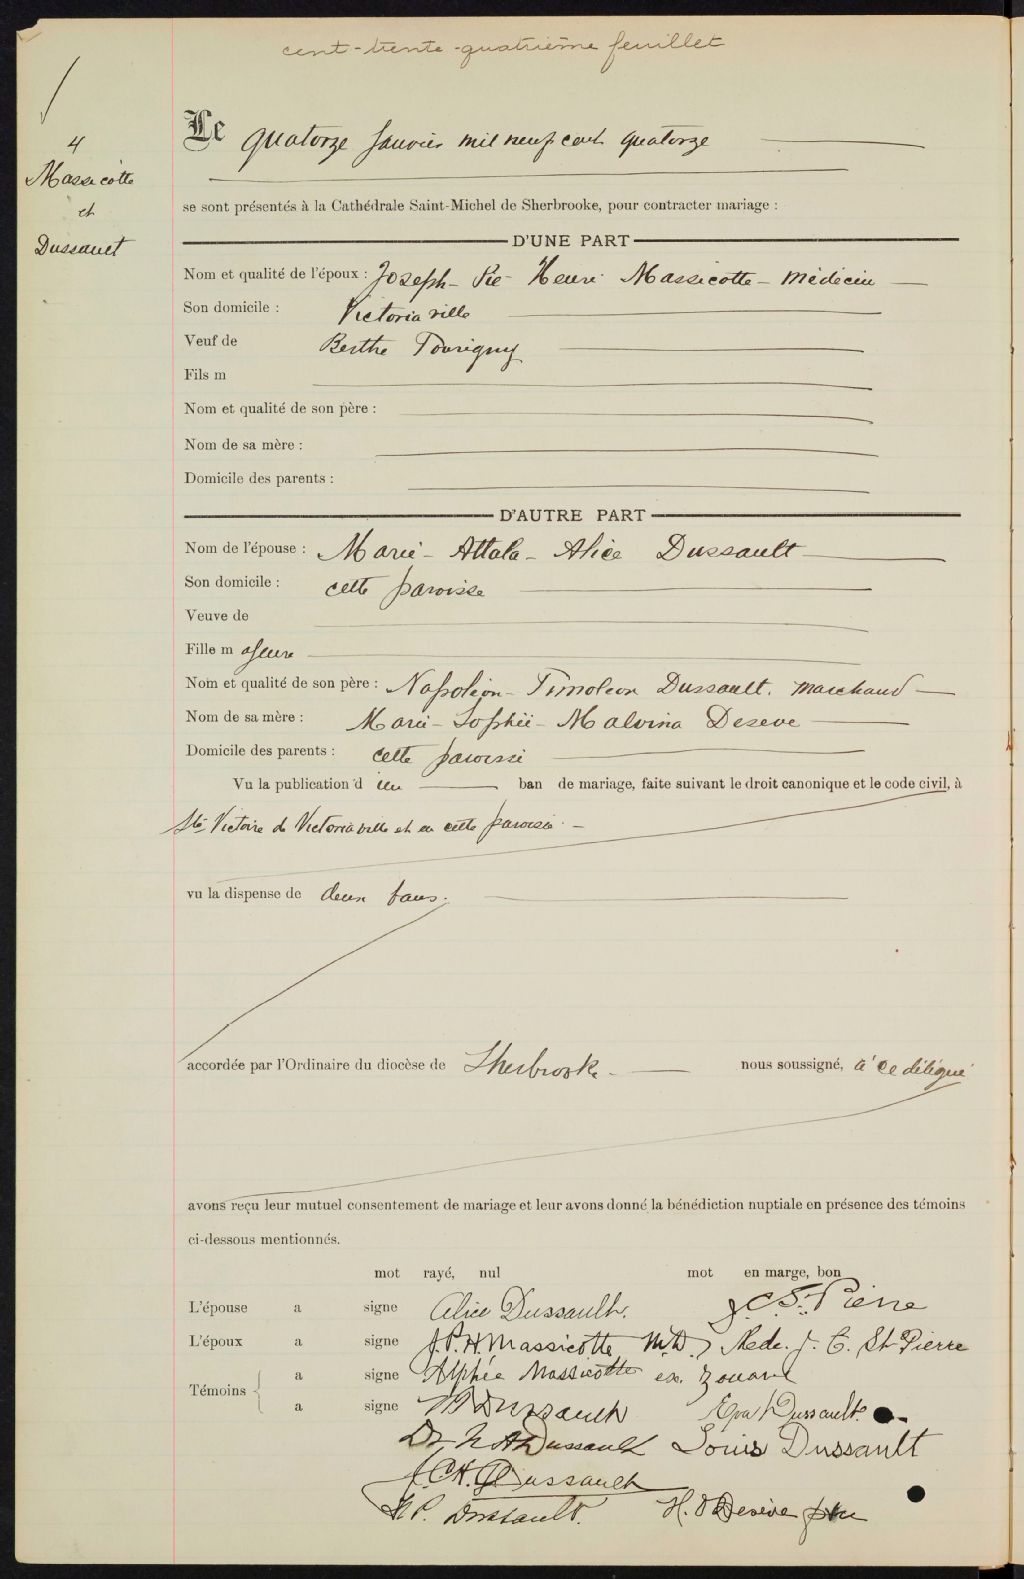 cent-trente-quatrième feuillet
4
Massicotte
et
Dussault
Le quatorze Janvier mil neuf cent quatorze
se sont présentés à la Cathédrale Saint-Michel de Sherbrooke, pour contracter mariage :
D'UNE PART
Nom et qualité de l'époux : Joseph-Pie-Henri Massicotte-médecin
Son domicile : Victoriaville
Veuf de Berthe Tourigny
Fils m
Nom et qualité de son père :
Nom de sa mère :
Domicile des parents :
D'AUTRE PART
Nom de l'épouse : Marie-Attala-Alice Dussault
Son domicile : cette paroisse
Veuve de
Fille m ajeure
Nom et qualité de son père : Napoléon-Timoleon Dussault. marchand
Nom de sa mère : Marie-Sophie-Malvina Deseve
Domicile des parents : cette paroisse
Vu la publication d un ban de mariage, faite suivant le droit canonique et le code civil, à
Ste Victoire de Victoriaville et en cette paroisse
vu la dispense de deux bans.
accordée par l'Ordinaire du diocèse de Sherbrooke nous soussigné, à ce délégué
avons reçu leur mutuel consentement de mariage et leur avons donné la bénédiction nuptiale en présence des témoins
ci-dessous mentionnés.
mot rayé, nul mot en marge, bon
L'épouse a signe Alice Dussault. J. C. St-Pierre
L'époux a signe J. P. H. Massicotte M.D. Mde. J. C. St-Pierre
Témoins a signe Alphée Massicotte ex. zouave
a signe Dussault Eva Dussault
Dr. N. A. Dussault Louis Dussault
J. C. H. Dussault
N. P. Dussault. H. O Deseve ptre